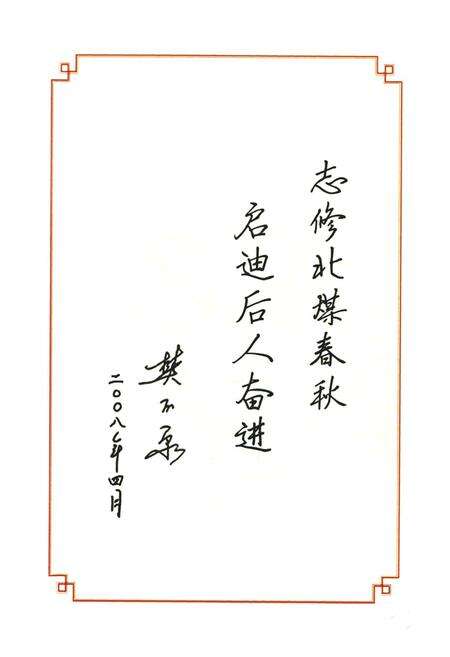 志修北煤春秋
启迪后人奋进
二〇〇八年四月